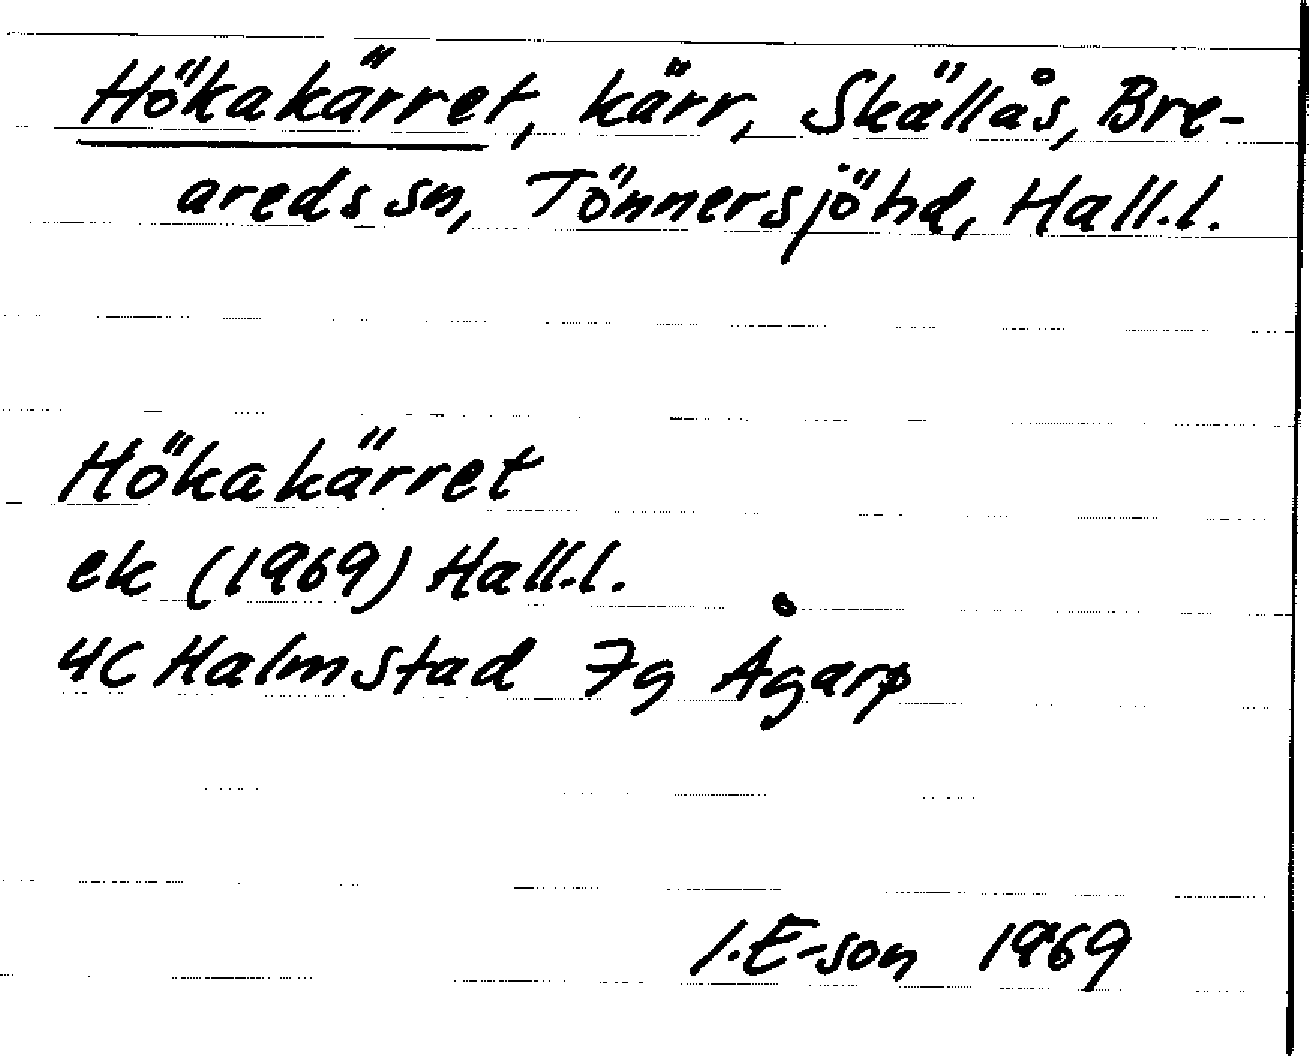 Hökakärret, kärr, Skällås, Bre-
areds sn, Tönnersjöhd, Hall.l.
Hökakärret
ek (1969) Hall.l.
4C Halmstad 7g Ågarp
I.E-son 1969